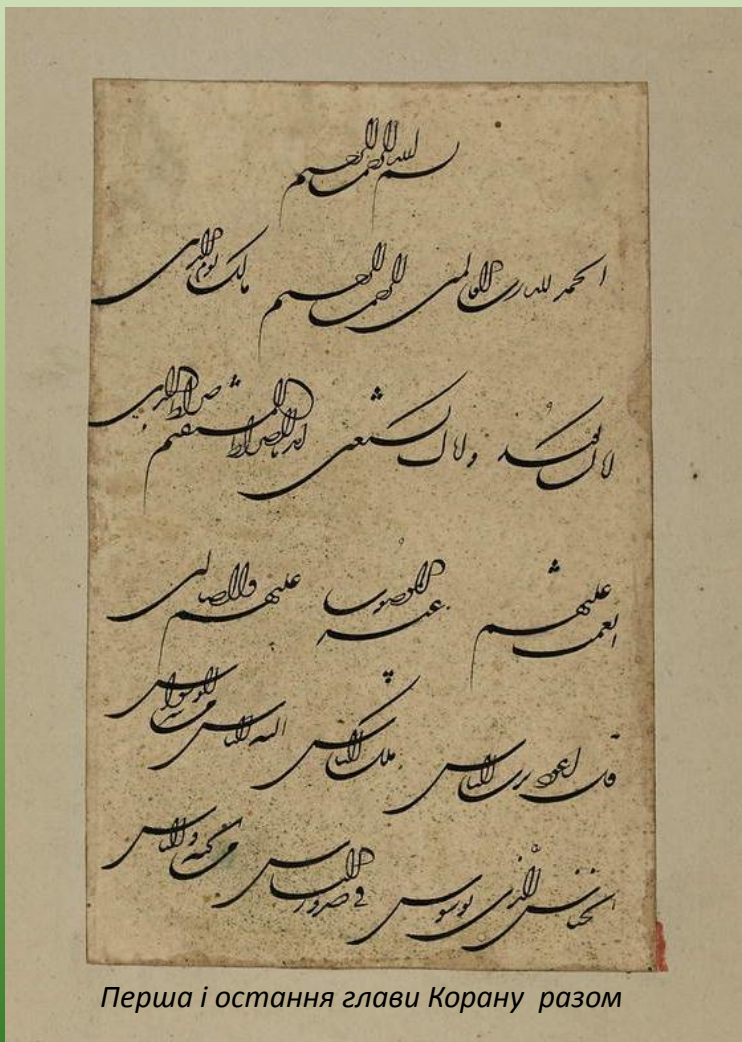 بسم الله الرحمن الرحيم
الحمد لله رب العالمين الرحمن الرحيم مالك يوم الدين
اياك نعبد واياك نستعين اهدنا الصراط المستقيم صراط الذين
انعمت عليهم غير المغضوب عليهم ولا الضالين
قل اعوذ برب الناس ملك الناس اله الناس من شر الوسواس
الخناس الذي يوسوس في صدور الناس من الجنة والناس
Перша і остання глави Корану разом